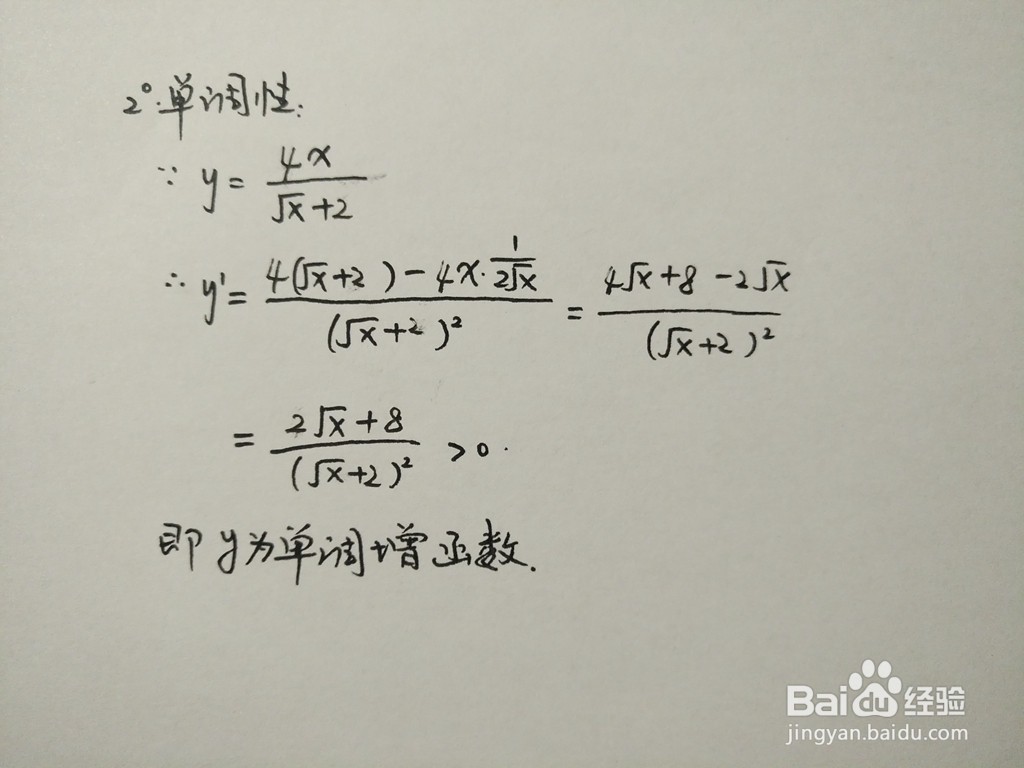 2°.单调性:
∵ y = 4x/(√x+2)
∴ y' = [4(√x+2)-4x·1/(2√x)]/(√x+2)² = (4√x+8-2√x)/(√x+2)²
= (2√x+8)/(√x+2)² >0.
即y为单调增函数.
Bai经验
jingyan.baidu.com